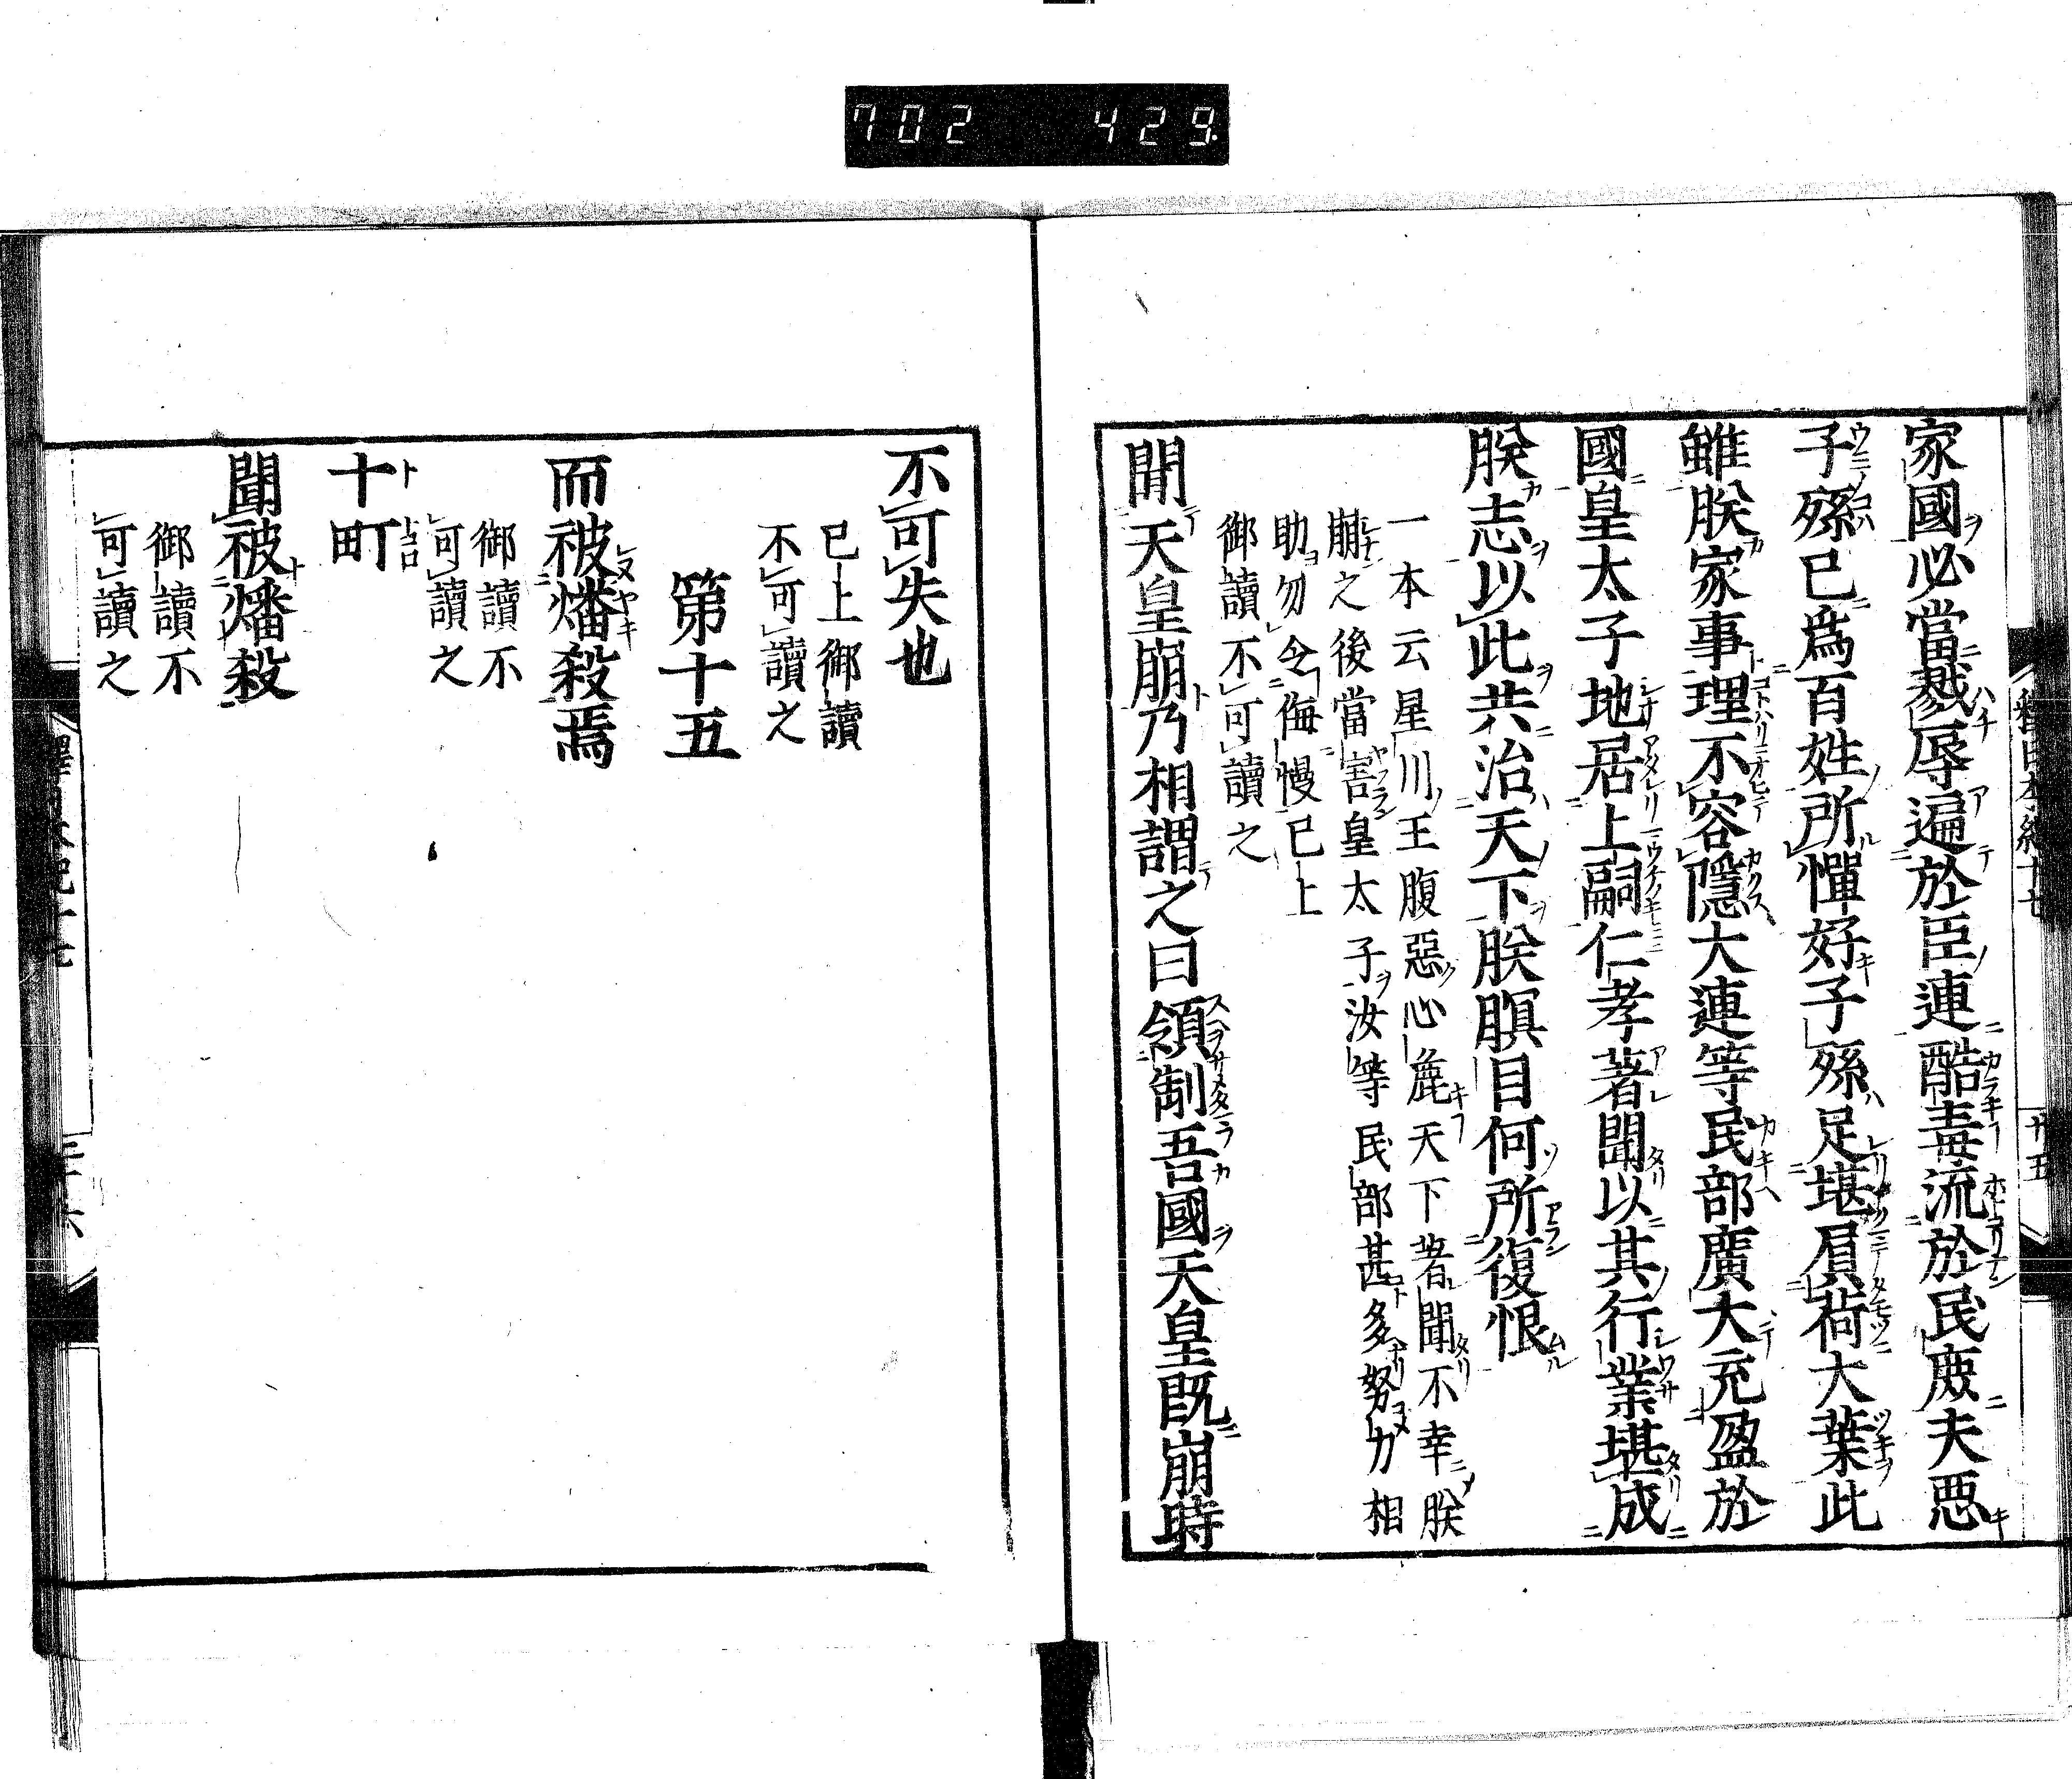 702 429
家國必當戮辱遍於臣連酷毒流於民庶夫惡
子孫已爲百姓所憚好子孫足堪負荷大業此
雖朕家事理不容隱大連等民部廣大充盈於
國皇太子地居上嗣仁孝著聞以其行業堪成
朕志以此共治天下朕瞑目何所復恨
一本云星川王腹惡心麁天下著聞不幸朕
崩之後當害皇太子汝等民部甚多努力相
助勿令侮慢已上
御讀不可讀之
聞天皇崩乃相謂之曰領制吾國天皇既崩時
不可失也
已上御讀
不可讀之
第十五
而被燔殺焉
御讀不
可讀之
十町
聞被燔殺
御讀不
可讀之